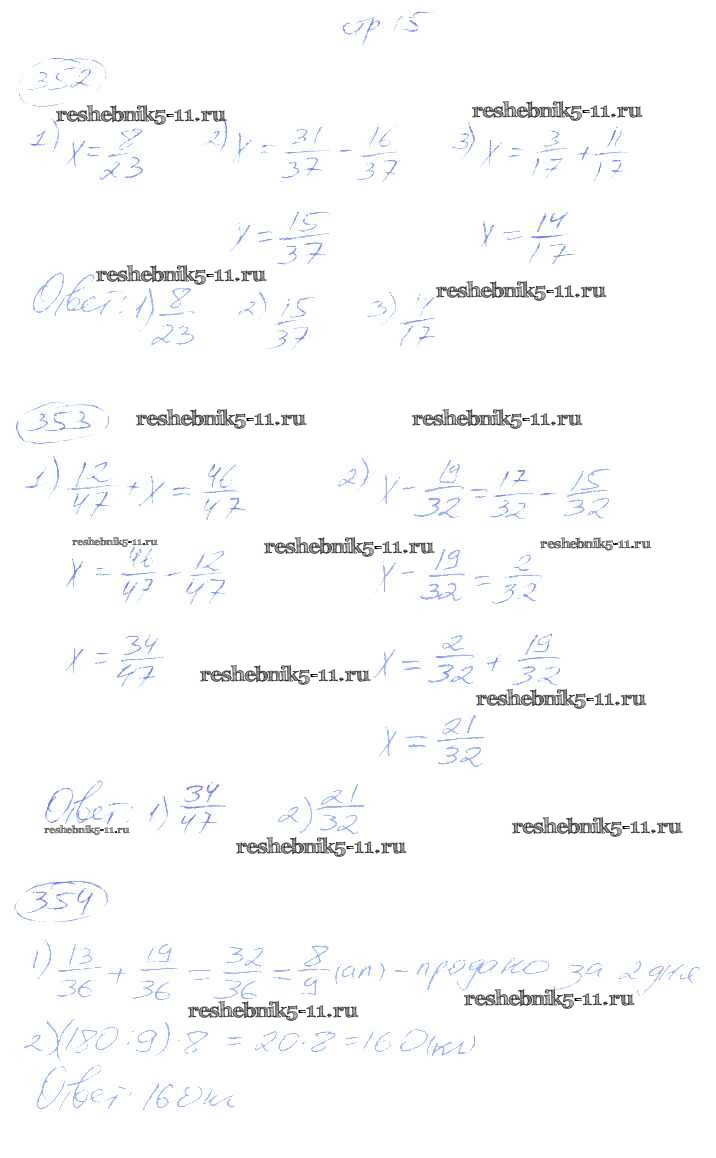 стр 15
352
reshebnik5-11.ru reshebnik5-11.ru
1) x = 8/23 2) x = 31/37 - 16/37 3) x = 3/17 + 11/17
x = 15/37 x = 14/17
reshebnik5-11.ru reshebnik5-11.ru
Ответ: 1) 8/23 2) 15/37 3) 11/17
353 reshebnik5-11.ru reshebnik5-11.ru
1) 12/47 + x = 46/47 2) x - 19/32 = 17/32 - 15/32
reshebnik5-11.ru reshebnik5-11.ru reshebnik5-11.ru
x = 46/47 - 12/47 x - 19/32 = 2/32
x = 34/47 x = 2/32 + 19/32
reshebnik5-11.ru reshebnik5-11.ru
x = 21/32
Ответ: 1) 34/47 2) 21/32
reshebnik5-11.ru reshebnik5-11.ru reshebnik5-11.ru
354
1) 13/36 + 19/36 = 32/36 = 8/9 (ап) - продано за 2 дня
reshebnik5-11.ru reshebnik5-11.ru
2) (180 : 9) · 8 = 20 · 8 = 160 (кг)
Ответ: 160 кг